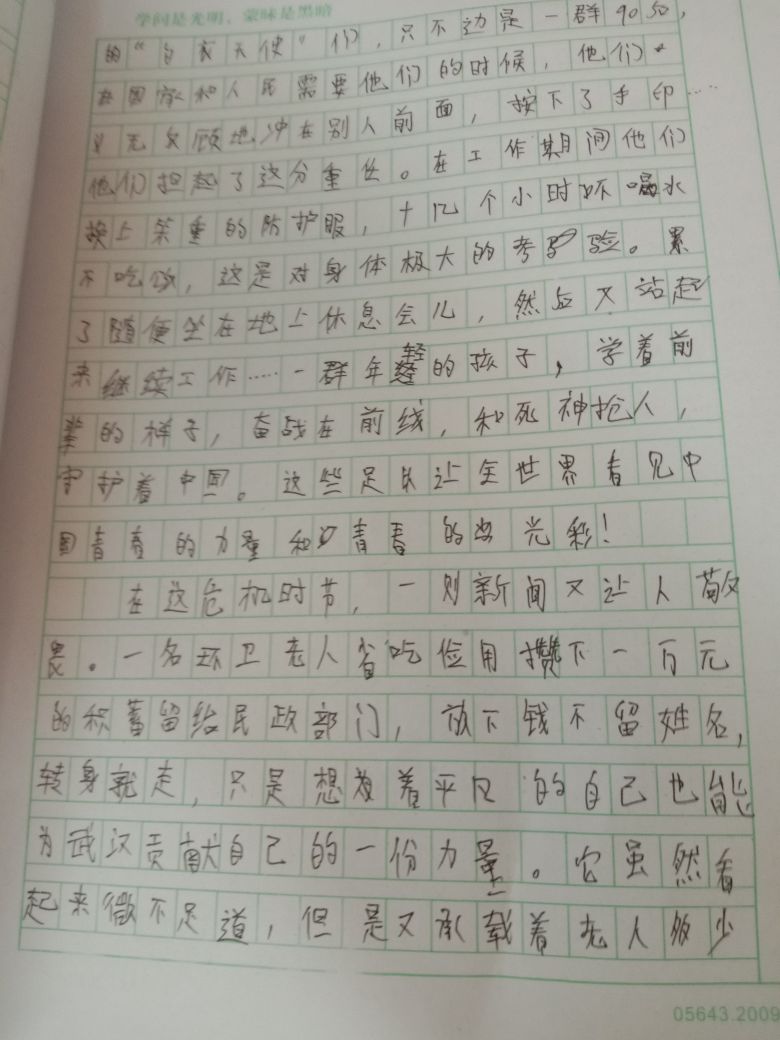 学问是光明，蒙昧是黑暗
的“白衣天使”们，只不边是一群90 50，
在国家和人民需要他们的时候，他们
义无反顾地冲在别人前面，按下了手印……
他们担起了这分重任。在工作期间他们
换上笨重的防护服，十几个小时不喝水
不吃饭，这是对身体极大的考验。累
了随便坐在地上休息会儿，然后又站起
来继续工作……一群年轻的孩子，学着前
辈的样子，奋战在前线，和死神抢人，
守护着中国。这些足以让全世界看见中
国青春的力量和青春的光彩！
在这危机时节，一则新闻又让人敬
畏。一名环卫老人省吃俭用攒下一万元
的积蓄留给民政部门，放下钱不留姓名，
转身就走，只是想着平凡的自己也能
为武汉贡献自己的一份力量。它虽然看
起来微不足道，但是又承载着老人多少
05643.2009